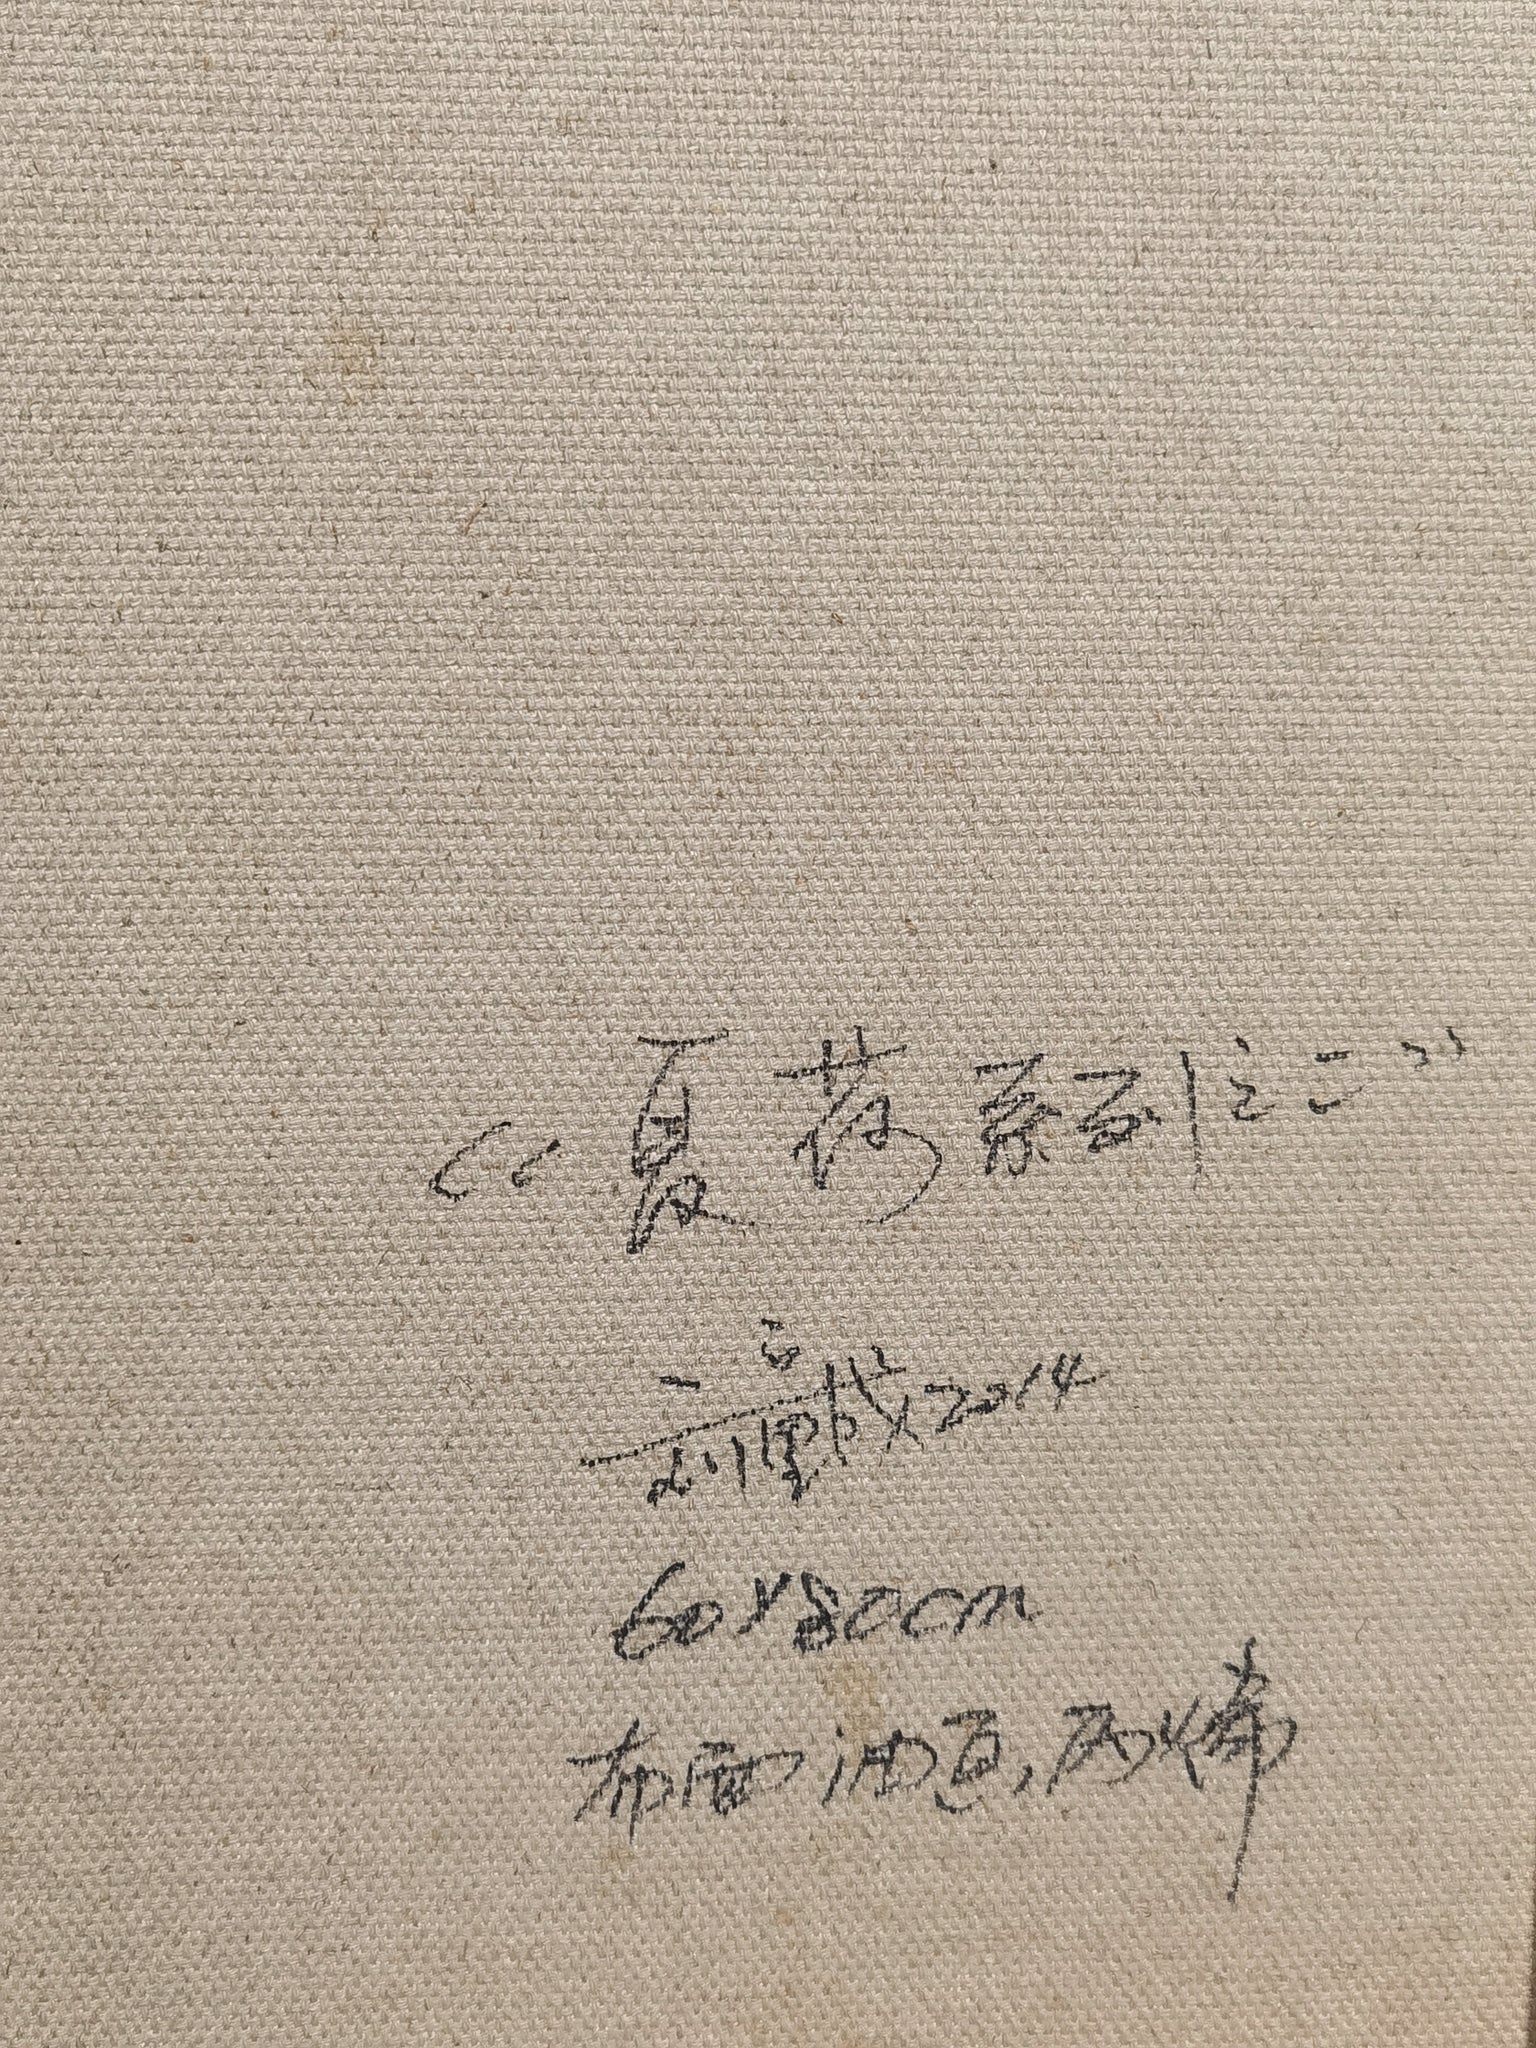 “夏荷系列之二”
2014
60×80cm
布面油画，丙烯